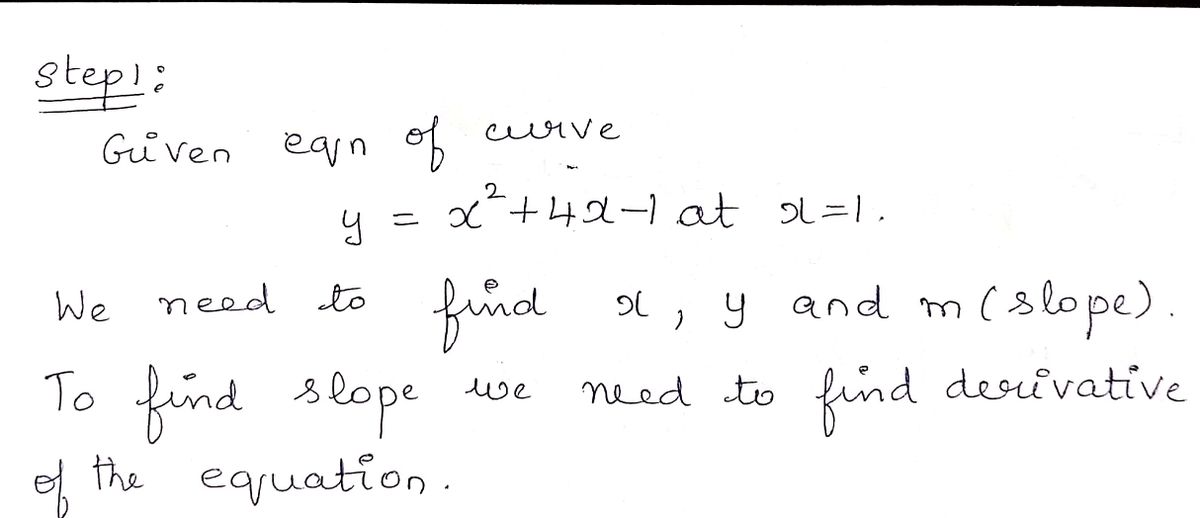 Step1:
Given eqn of curve
y = x²+4x-1 at x=1.
We need to find x, y and m (slope).
To find slope we need to find derivative
of the equation.